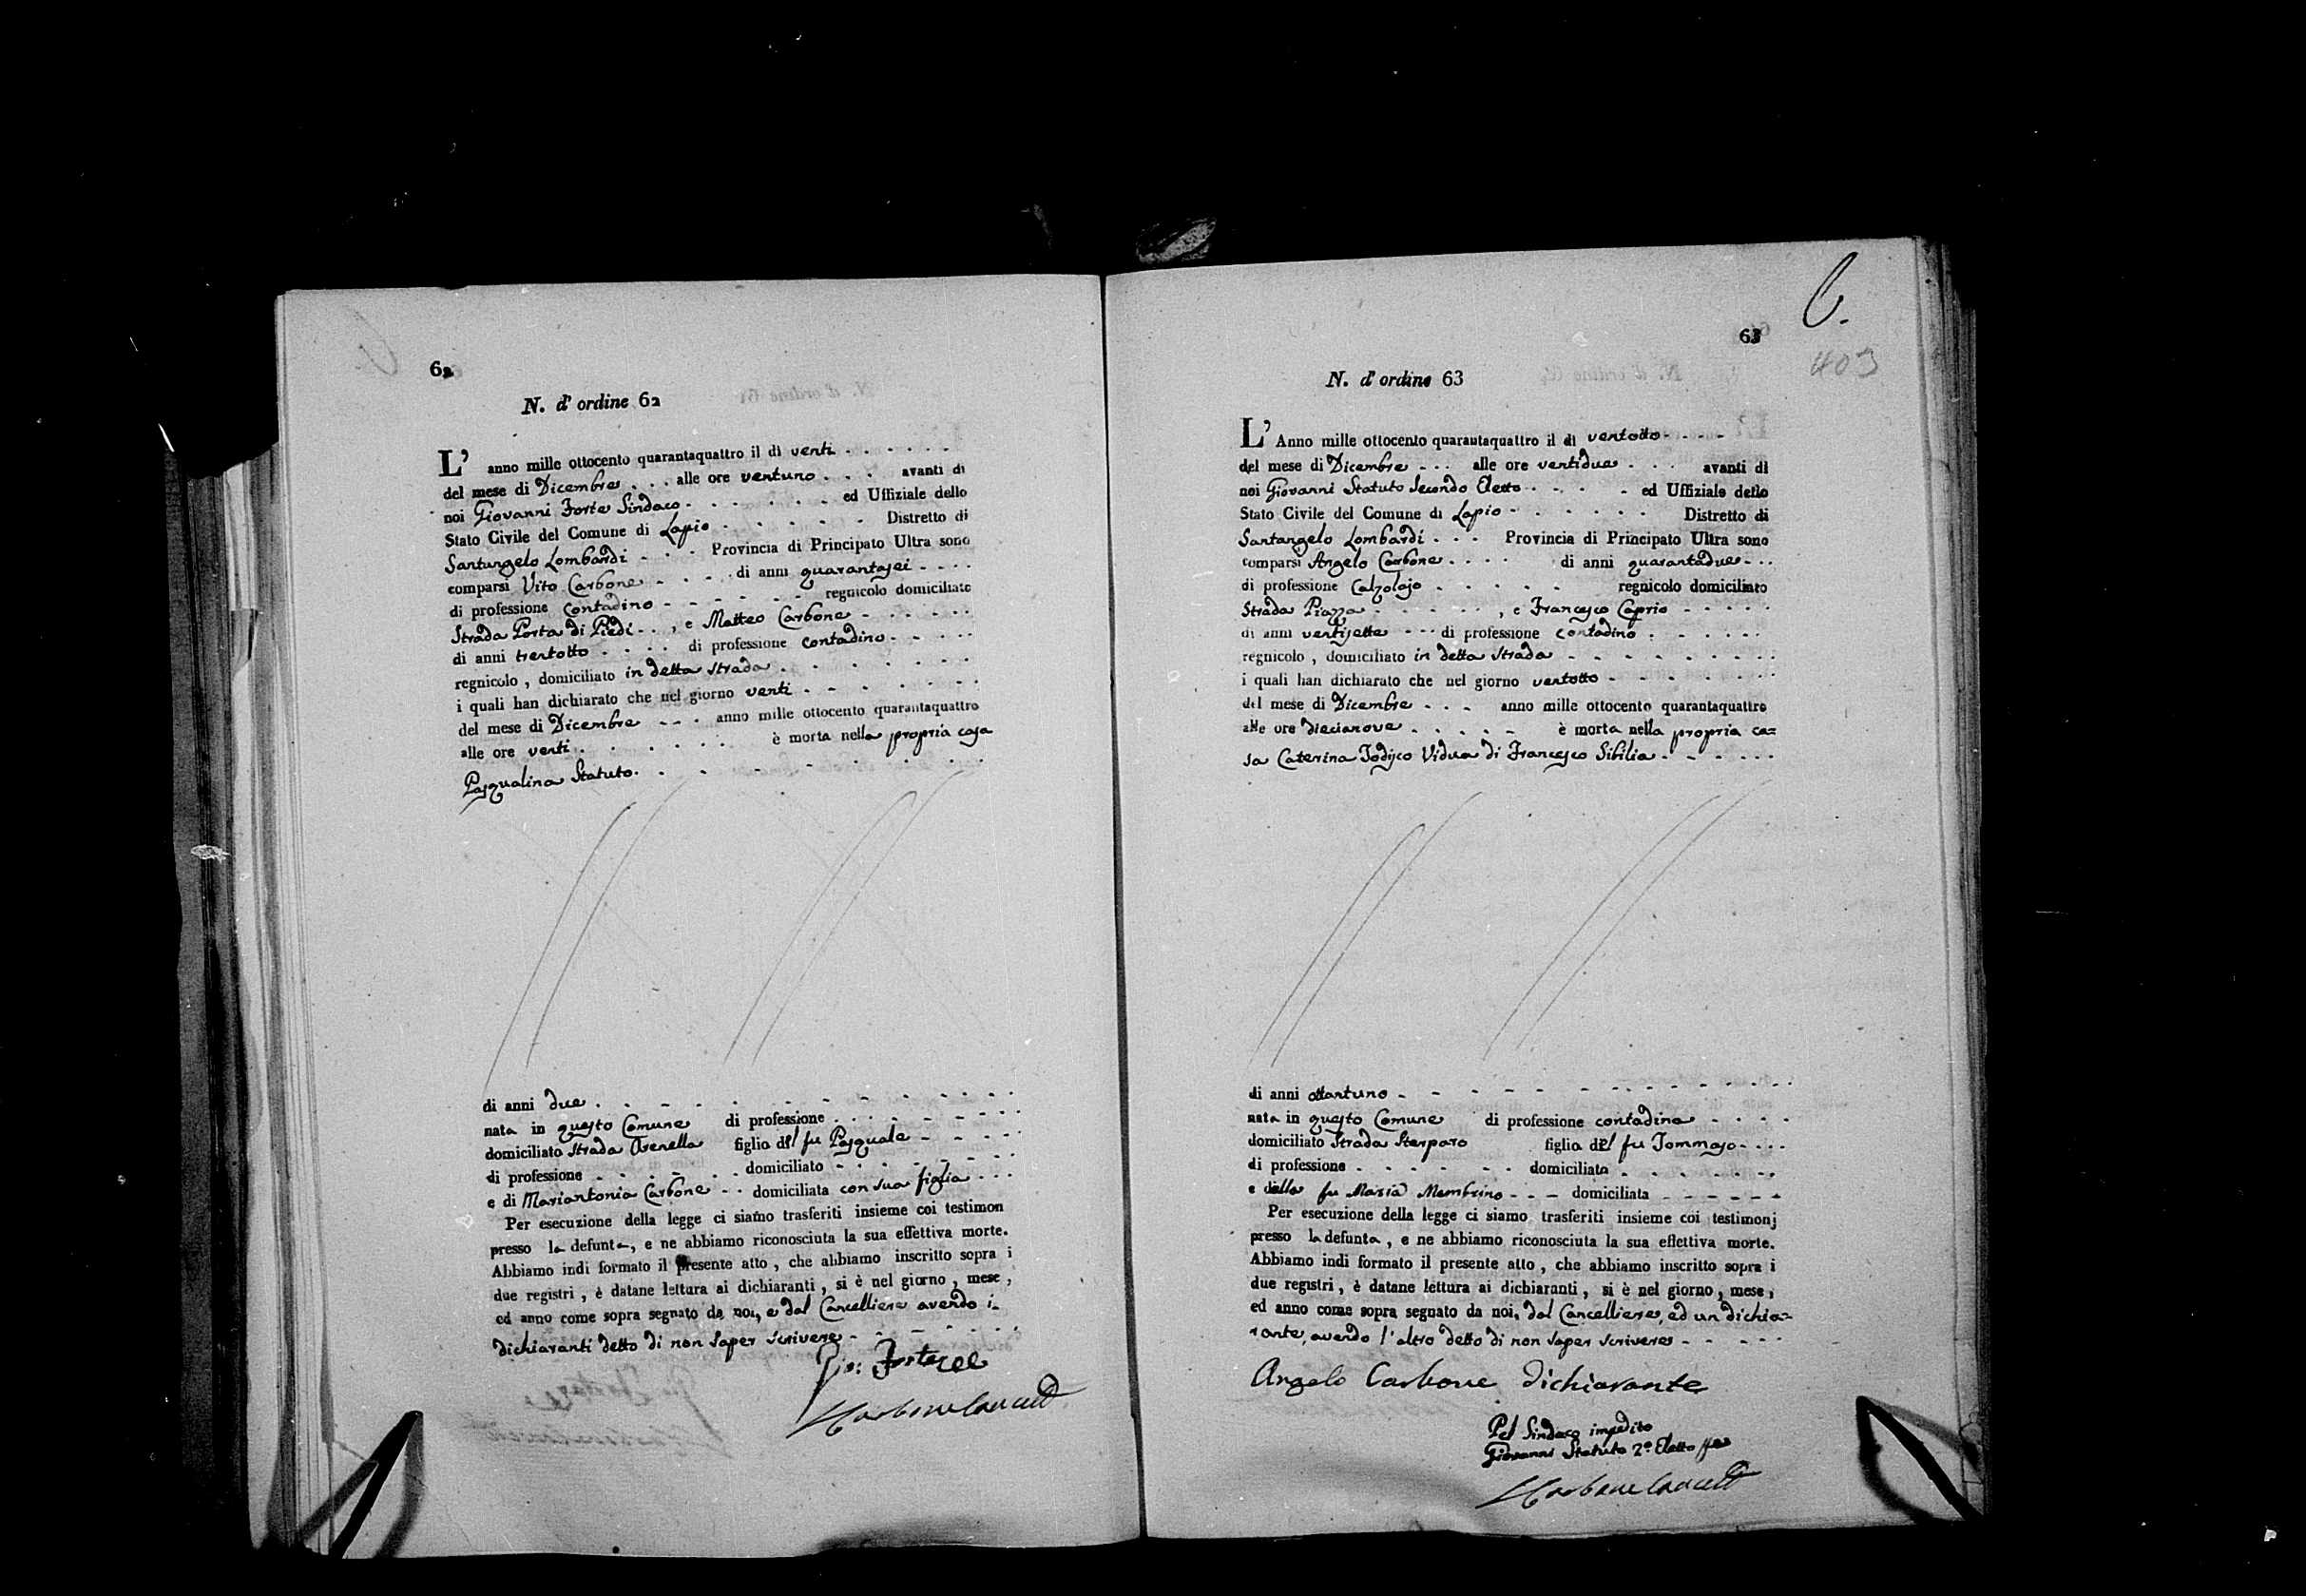 62
N. d' ordine 62
L' anno mille ottocento quarantaquattro il dì venti
del mese di Dicembre alle ore ventuno avanti di
noi Giovanni Forte Sindaco ed Uffiziale dello
Stato Civile del Comune di Lapio Distretto di
Santangelo Lombardi Provincia di Principato Ultra sono
comparsi Vito Carbone di anni quarantasei
di professione contadino regnicolo domiciliato
Strada Porta di Piedi , e Matteo Carbone
di anni trentotto di professione contadino
regnicolo , domiciliato in detta strada
i quali han dichiarato che nel giorno venti
del mese di Dicembre anno mille ottocento quarantaquattro
alle ore venti è morta nella propria casa
Pasqualina Statuto
di anni due
nata in questo Comune di professione
domiciliato Strada Arenella figlia del fu Pasquale
di professione domiciliato
e di Mariantonia Carbone domiciliata con sua figlia
Per esecuzione della legge ci siamo trasferiti insieme coi testimon
presso la defunta, e ne abbiamo riconosciuta la sua effettiva morte.
Abbiamo indi formato il presente atto , che abbiamo inscritto sopra i
due registri , è datane lettura ai dichiaranti , si è nel giorno , mese ,
ed anno come sopra segnato da noi, e dal Cancelliere avendo i
dichiaranti detto di non saper scrivere
Gio: Forte
63
C.
403
N. d' ordine 63
L' Anno mille ottocento quarantaquattro il dì ventotto
del mese di Dicembre alle ore ventidue avanti di
noi Giovanni Statuto Secondo Eletto ed Uffiziale dello
Stato Civile del Comune di Lapio Distretto di
Santangelo Lombardi Provincia di Principato Ultra sono
comparsi Angelo Carbone di anni quarantadue
di professione Calzolajo regnicolo domiciliato
Strada Piazza , e Francesco Caprio
di anni ventisette di professione contadino
regnicolo , domiciliato in detta strada
i quali han dichiarato che nel giorno ventotto
del mese di Dicembre anno mille ottocento quarantaquattro
alle ore diecianove è morta nella propria ca=
sa Caterina Todisco Vidua di Francesco Sibilia
di anni ottantuno
nata in questo Comune di professione contadina
domiciliato Strada Sterparo figlia del fu Tommaso
di professione domiciliato
e della fu Maria Membrino domiciliata
Per esecuzione della legge ci siamo trasferiti insieme coi testimonj
presso la defunta , e ne abbiamo riconosciuta la sua effettiva morte.
Abbiamo indi formato il presente atto , che abbiamo inscritto sopra i
due registri , è datane lettura ai dichiaranti , si è nel giorno , mese ,
ed anno come sopra segnato da noi, dal Cancelliere, ed un dichia=
rante, avendo l'altro detto di non saper scrivere
Angelo Carbone dichiarante
Pel Sindaco impedito
Giovanni Statuto 2º Eletto